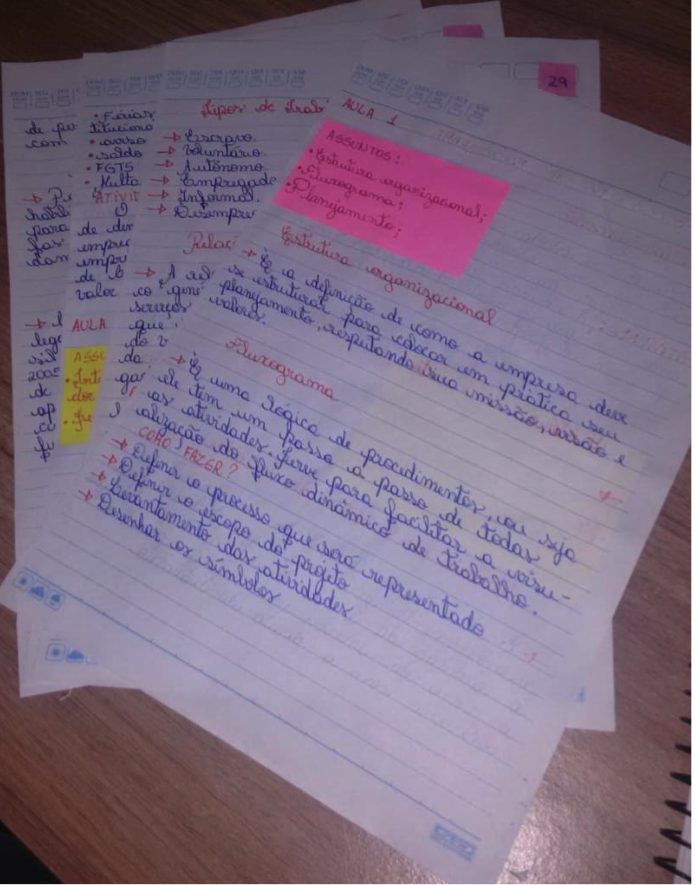 29
AULA 1
ASSUNTOS:
• Estrutura organizacional;
• Fluxograma;
• Planejamento;
Estrutura organizacional
→ É a definição de como a empresa deve
se estruturar para colocar em prática seu
planejamento, respeitando sua missão, visão e
valores.
Fluxograma
→ É uma lógica de procedimentos, ou seja
ele tem um passo a passo de todas
as atividades. Serve para facilitar a visu-
alização do fluxo dinâmico de trabalho.
COMO FAZER?
→ Definir o processo que será representado
→ Definir o escopo do projeto
→ Levantamento das atividades
→ Desenhar os símbolos
Tipos de Trab
→ Escravo
→ Voluntário
→ Autônomo
→ Empregado
→ Informal
→ Desempre
Relaç
→ A rel
serviços
que
do v
• Férias
• aviso
• saldo
• FGTS
• Multa
ATIVIT
de
empre
de
valor
AULA
ASSU
• Int
de
com
para
2005
de